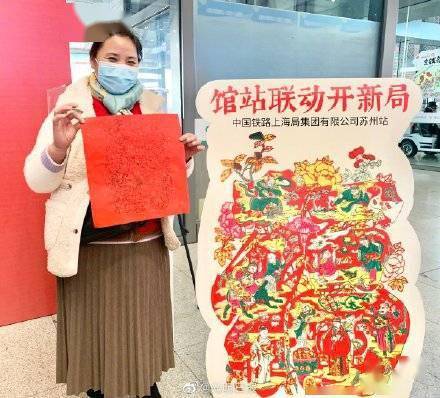 馆站联动开新局
中国铁路上海局集团有限公司苏州站